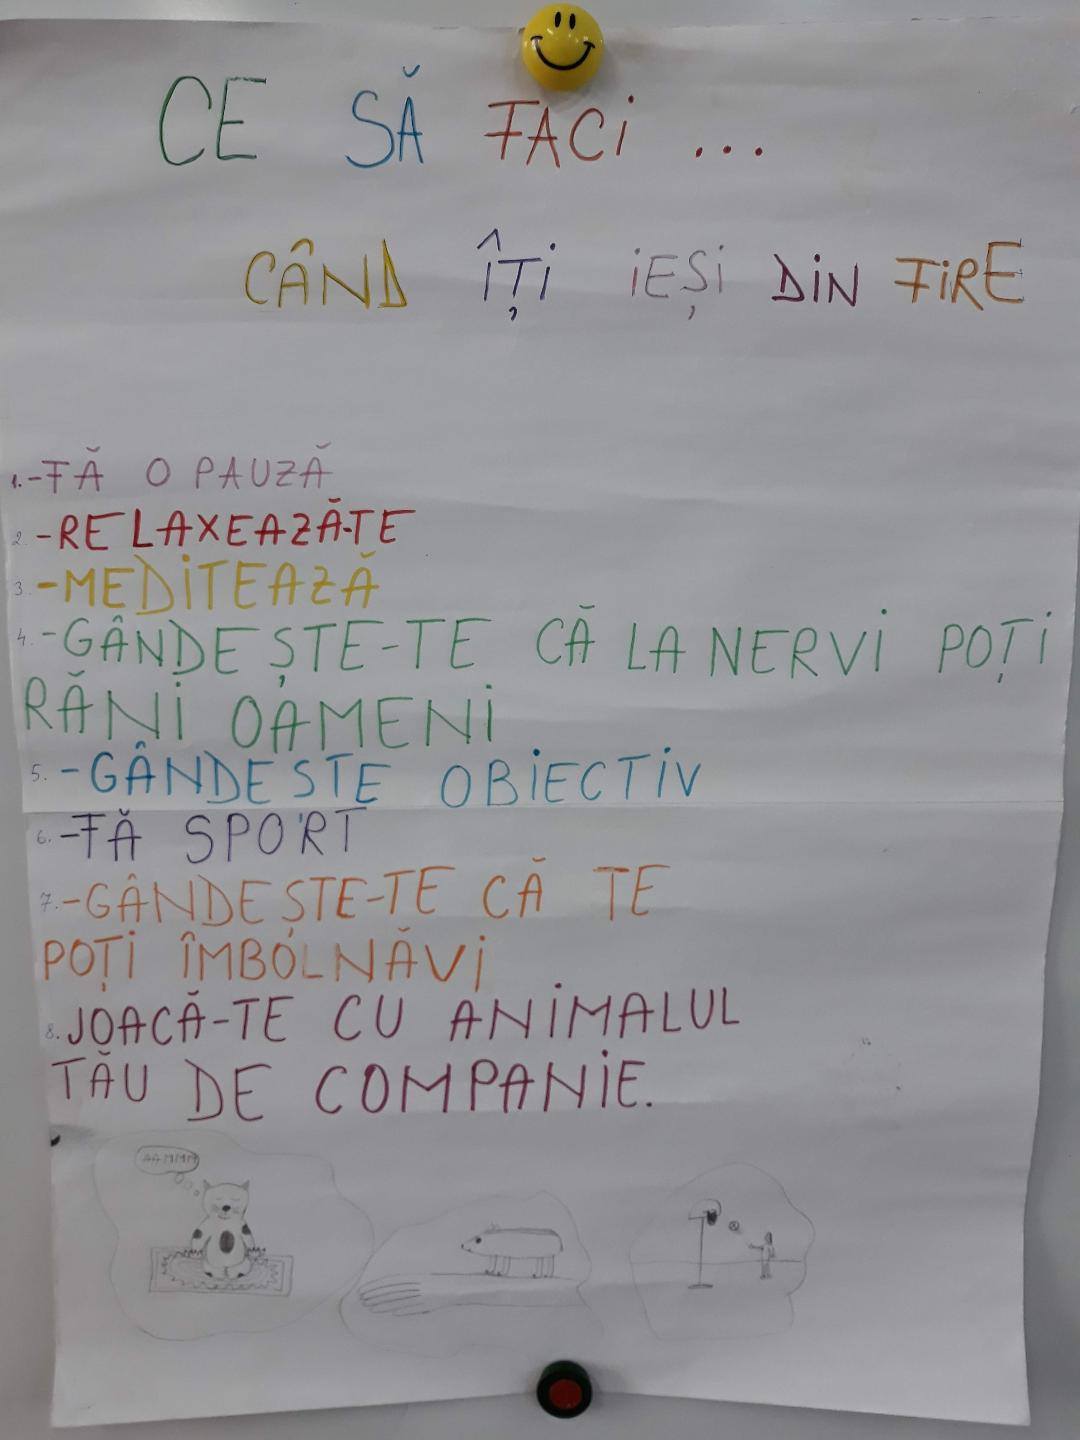 CE SĂ FACi ...
CÂND ÎȚi iEȘi DiN FiRE
1.-FĂ O PAUZĂ
2.-RELAXEAZĂ-TE
3.-MEDiTEAZĂ
4.-GÂNDEȘTE-TE CĂ LA NERVi POȚi
RĂNi OAMENi
5.-GÂNDESTE OBiECTiV
6.-FĂ SPORT
7.-GÂNDEȘTE-TE CĂ TE
POȚi ÎMBOLNĂVi
8.JOACĂ-TE CU ANiMALUL
TĂU DE COMPANiE.
AAMMM